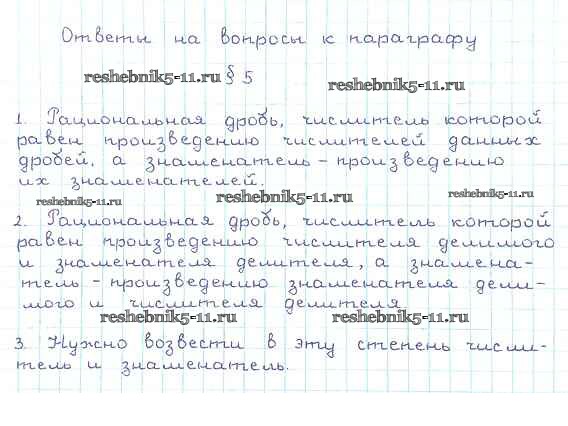 Ответы на вопросы к параграфу
reshebnik5-11.ru § 5 reshebnik5-11.ru
1. Рациональная дробь, числитель которой
равен произведению числителей данных
дробей, а знаменатель - произведению
их знаменателей.
reshebnik5-11.ru reshebnik5-11.ru reshebnik5-11.ru
2. Рациональная дробь, числитель которой
равен произведению числителя делимого
и знаменателя делителя, а знамена-
тель - произведению знаменателя дели-
мого и числителя делителя.
reshebnik5-11.ru reshebnik5-11.ru
3. Нужно возвести в эту степень числи-
тель и знаменатель.